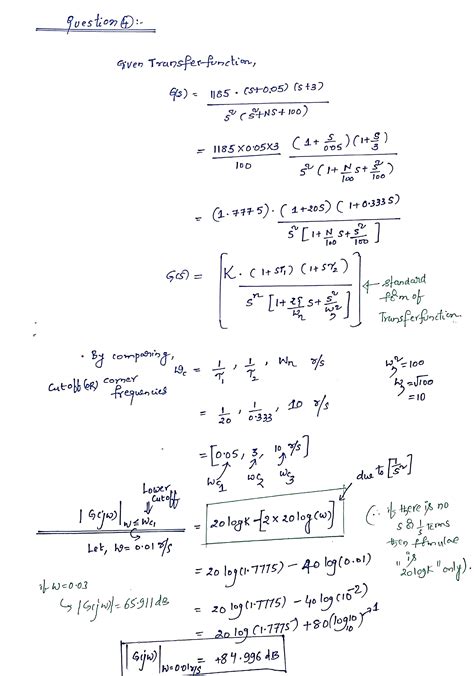 Question ④:-
Given Transfer function,
G(s) = 1185 · (s+0.05) (s+3) / s² (s²+NS+100)
= 1185×0.05×3 / 100 (1+ S/0.05) (1+ S/3) / s² (1+ N/100 s + s²/100)
= (1.7775) · (1+20s) (1+0.333s) / s² [1+ N/100 s + s²/100]
G(s) = [K · (1+ST₁) (1+ST₂) / sⁿ [1+ 2ξ/Wn s + s²/Wn²]] ← standard form of Transfer function.
· By comparing,
Cutoff (or) corner frequencies
Wc = 1/T₁, 1/T₂, Wn r/s
Wn² = 100
Wn = √100
= 10
= 1/20, 1/0.333, 10 r/s
= [0.05, 3, 10 r/s]
Wc₁ Wc₂ Wc₃
due to [1/s²]
Lower cutoff
|G(jw)| W≤Wc₁ = 20logK - [2×20log(w)]
(∵ if there is no s & 1/s terms then formulae is "20logK" only).
Let, W= 0.01 r/s
= 20 log(1.7775) - 40 log(0.01)
if w=0.03
↳ |G(jw)| = 65.911 dB
= 20 log(1.7775) - 40 log(10⁻²)
= 20 log(1.7775) + 80 (log₁₀10)↗1
|G(jw)| W=0.01r/s = +84.996 dB